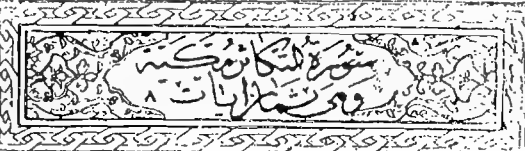 سُورَةُ التَّكَاثُرِ مَكِّيَّة
وَهِيَ ثَمَانِ اٰيَات ٨